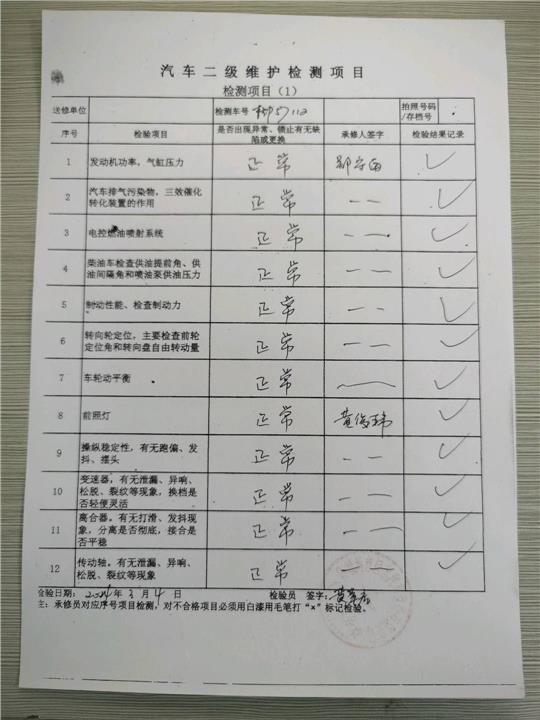 汽车二级维护检测项目
检测项目（1）
送修单位 检测车号 拍照号码/存档号
序号 检验项目 是否出现异常、锁止有无缺陷或更换 承修人签字 检验结果记录
1 发动机功率，气缸压力 正常 ✓
2 汽车排气污染物，三效催化转化装置的作用 正常 — — ✓
3 电控燃油喷射系统 正常 — — ✓
4 柴油车检查供油提前角、供油间隔角和喷油泵供油压力 正常 — — ✓
5 制动性能、检查制动力 正常 — — ✓
6 转向轮定位，主要检查前轮定位角和转向盘自由转动量 正常 — — ✓
7 车轮动平衡 正常 ✓
8 前照灯 正常 ✓
9 操纵稳定性，有无跑偏、发抖、摆头 正常 — — ✓
10 变速器，有无泄漏、异响、松脱、裂纹等现象，换档是否轻便灵活 正常 — — ✓
11 离合器。有无打滑、发抖现象，分离是否彻底，接合是否平稳 正常 — — ✓
12 传动轴。有无泄漏、异响、松脱、裂纹等现象 正常 — — ✓
验日期： 年3月4日 检验员 签字：
主：承修员对应序号项目检测，对不合格项目必须用白漆用毛笔打“×”标记检验。